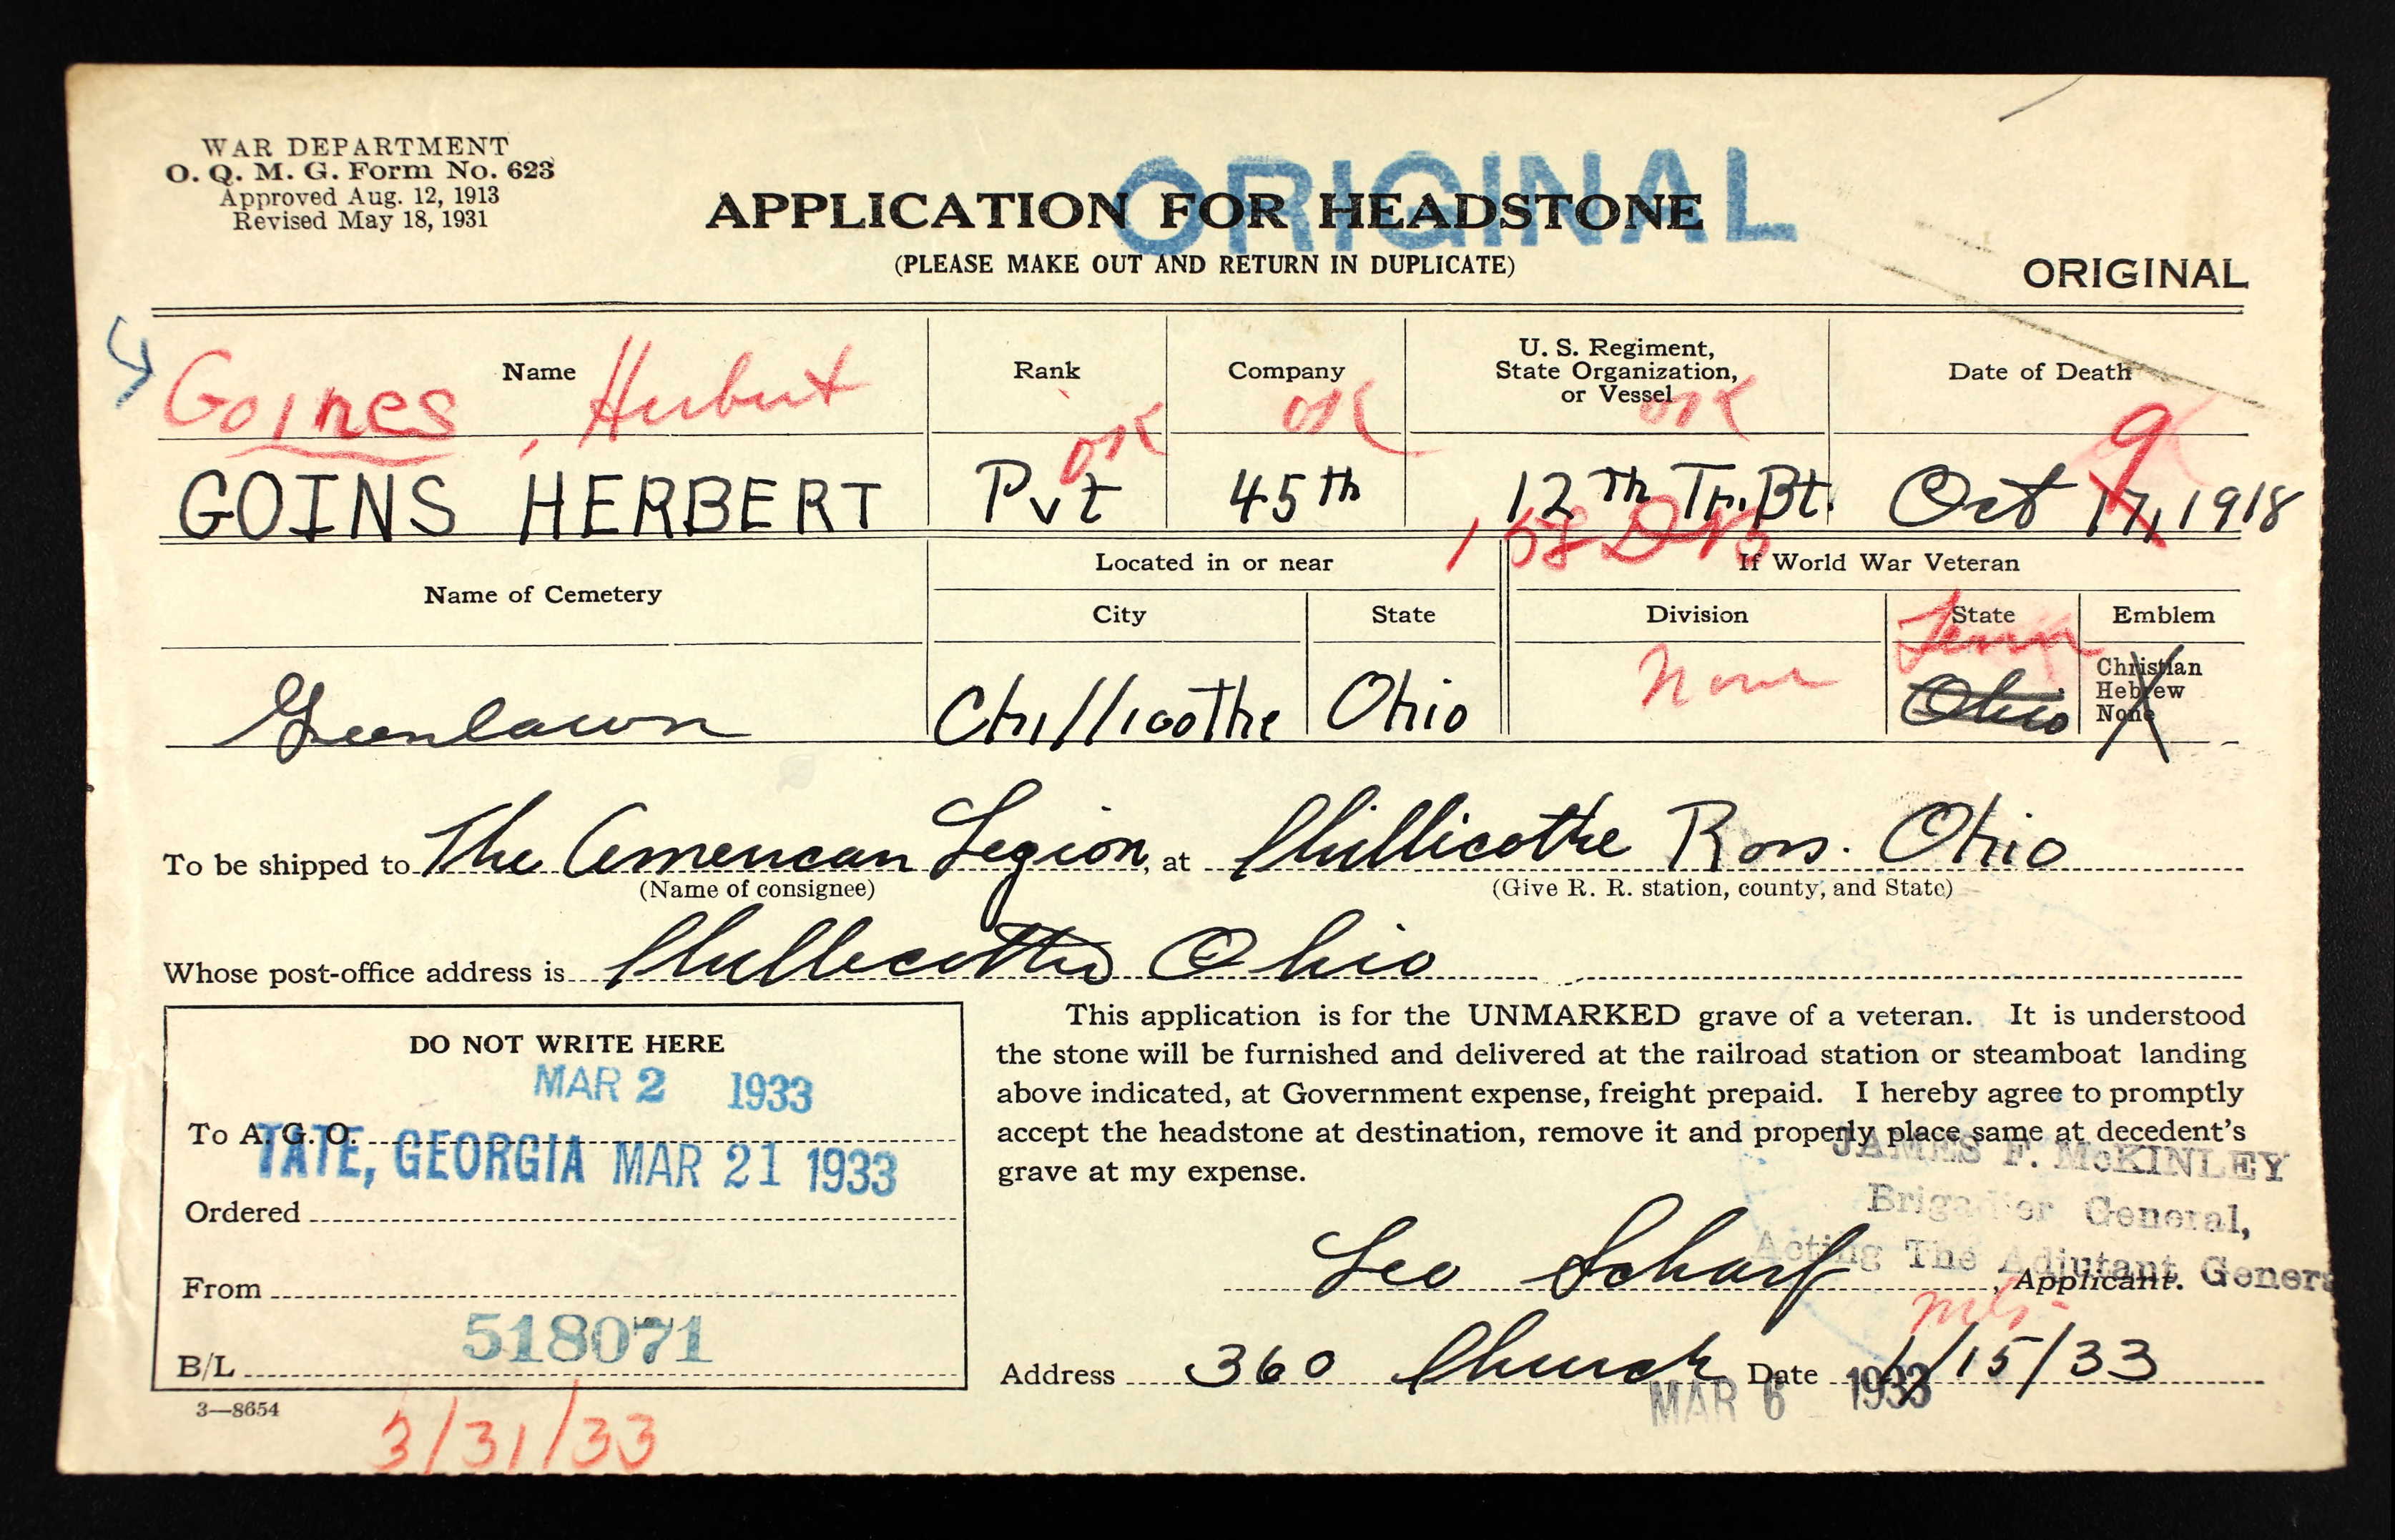 WAR DEPARTMENT
O. Q. M. G. Form No. 623
Approved Aug. 12, 1913
Revised May 18, 1931
ORIGINAL
APPLICATION FOR HEADSTONE
(PLEASE MAKE OUT AND RETURN IN DUPLICATE)
ORIGINAL
Name Rank Company U. S. Regiment, State Organization, or Vessel Date of Death
Goines, Herbert OK OK OK 9
GOINS HERBERT Pvt 45th 12th Tr. Bt. Oct 17, 1918
158 D N B
Name of Cemetery Located in or near If World War Veteran
City State Division State Emblem
Greenlawn Chillicothe Ohio None Tenn Ohio Christian
Hebrew
None
To be shipped to The American Legion, at Chillicothe Ross. Ohio
(Name of consignee) (Give R. R. station, county, and State)
Whose post-office address is Chillicothe Ohio
DO NOT WRITE HERE
MAR 2 1933
To A. G. O.
TATE, GEORGIA MAR 21 1933
Ordered
From
518071
B/L
3—8654
3/31/33
This application is for the UNMARKED grave of a veteran. It is understood
the stone will be furnished and delivered at the railroad station or steamboat landing
above indicated, at Government expense, freight prepaid. I hereby agree to promptly
accept the headstone at destination, remove it and properly place same at decedent's
grave at my expense.
JAMES F. McKINLEY
Brigadier General,
Acting The Adjutant General
Leo Scharf, Applicant.
Address 360 Church Date 1/15/33
MAR 6 1933